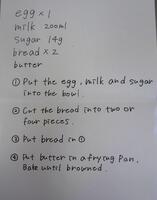 egg × 1
milk 200ml
Sugar 14g
bread × 2
butter
① Put the egg, milk and sugar
into the bowl.
② Cut the bread into two or
four pieces.
③ Put bread in ①
④ Put butter in a frying Pan.
Bake until browned.